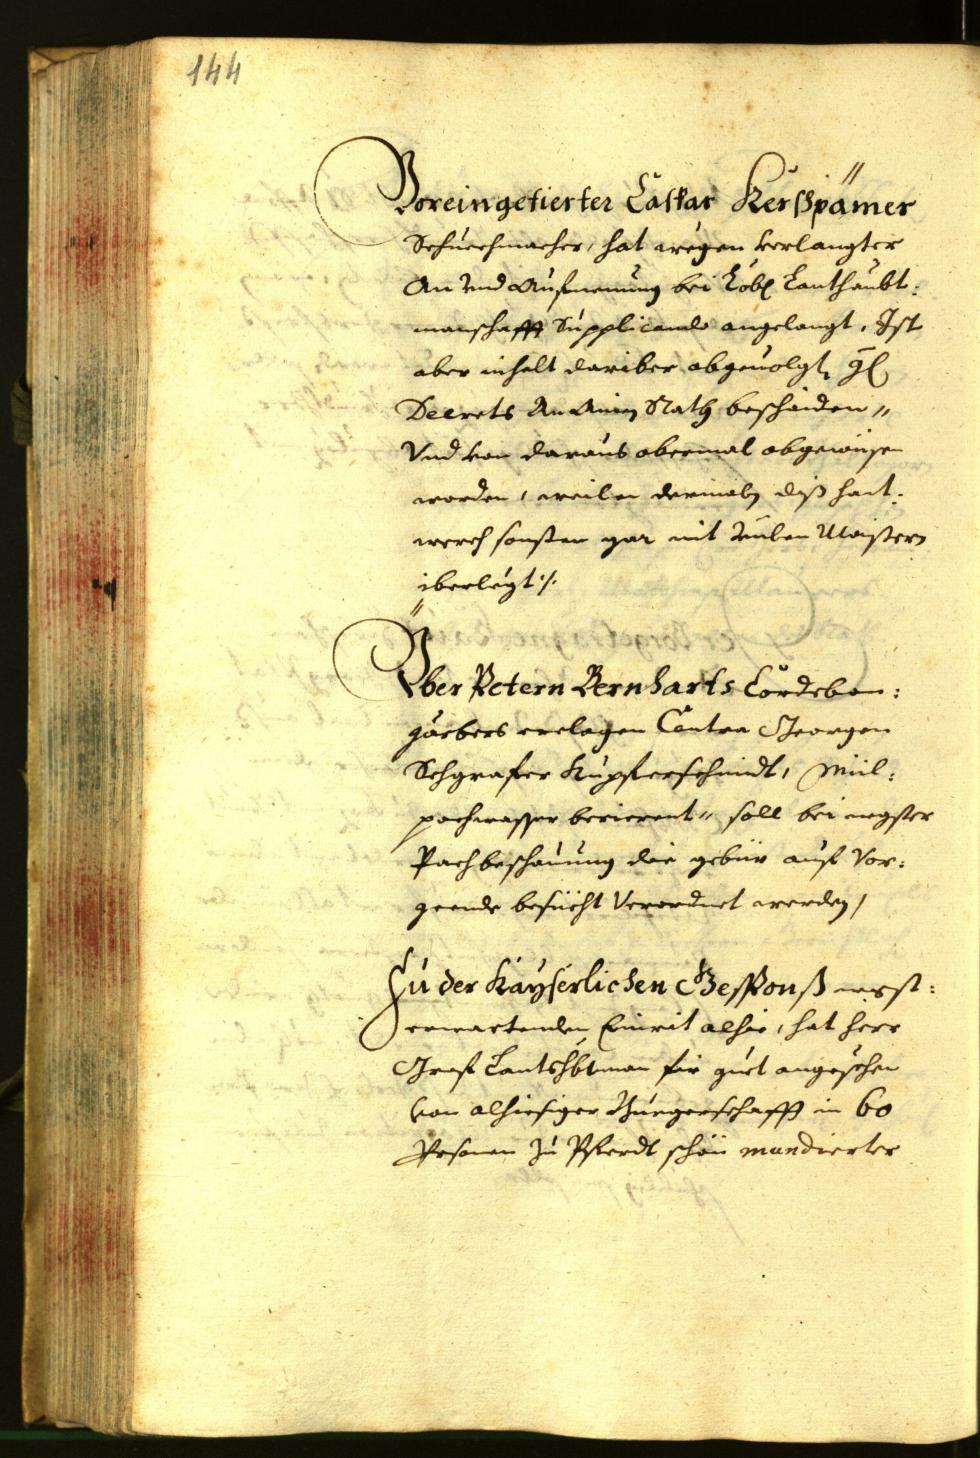 144
Voreingetierter Caspar Kerßpämer
Schuechmacher, hat wegen verlangter
An Und Aufnemung bei Löbl Lanthaubt:
manschafft Supplicando angelangt, Ist
aber inhalt dariber abgeuolgt, gl
Decrets An Ainen Rath beschaiden //
Vnd von daraus abermal abgewisen
worden, weilen dermaln diß hant:
werch sonsten gar mit vilen Maistern
iberlegt ./.
Vber Petern Bernharts Cordeban:
gärbers Contra Georgen
Schgrafer Kupferschmidt, Mül:
pachwasser berierent // soll bei negster
Pachbeschauung die gebür auf Vor:
geende besücht Verordnet werden /
Zu der Kayserlichen Gesponß negst:
erwartenden Einrit alhie, hat herr
Graf Lantshbtman fir guet angesehen
von alhiesiger Burgerschafft in 60
Persohnen Zu Pferdt schön mundierter